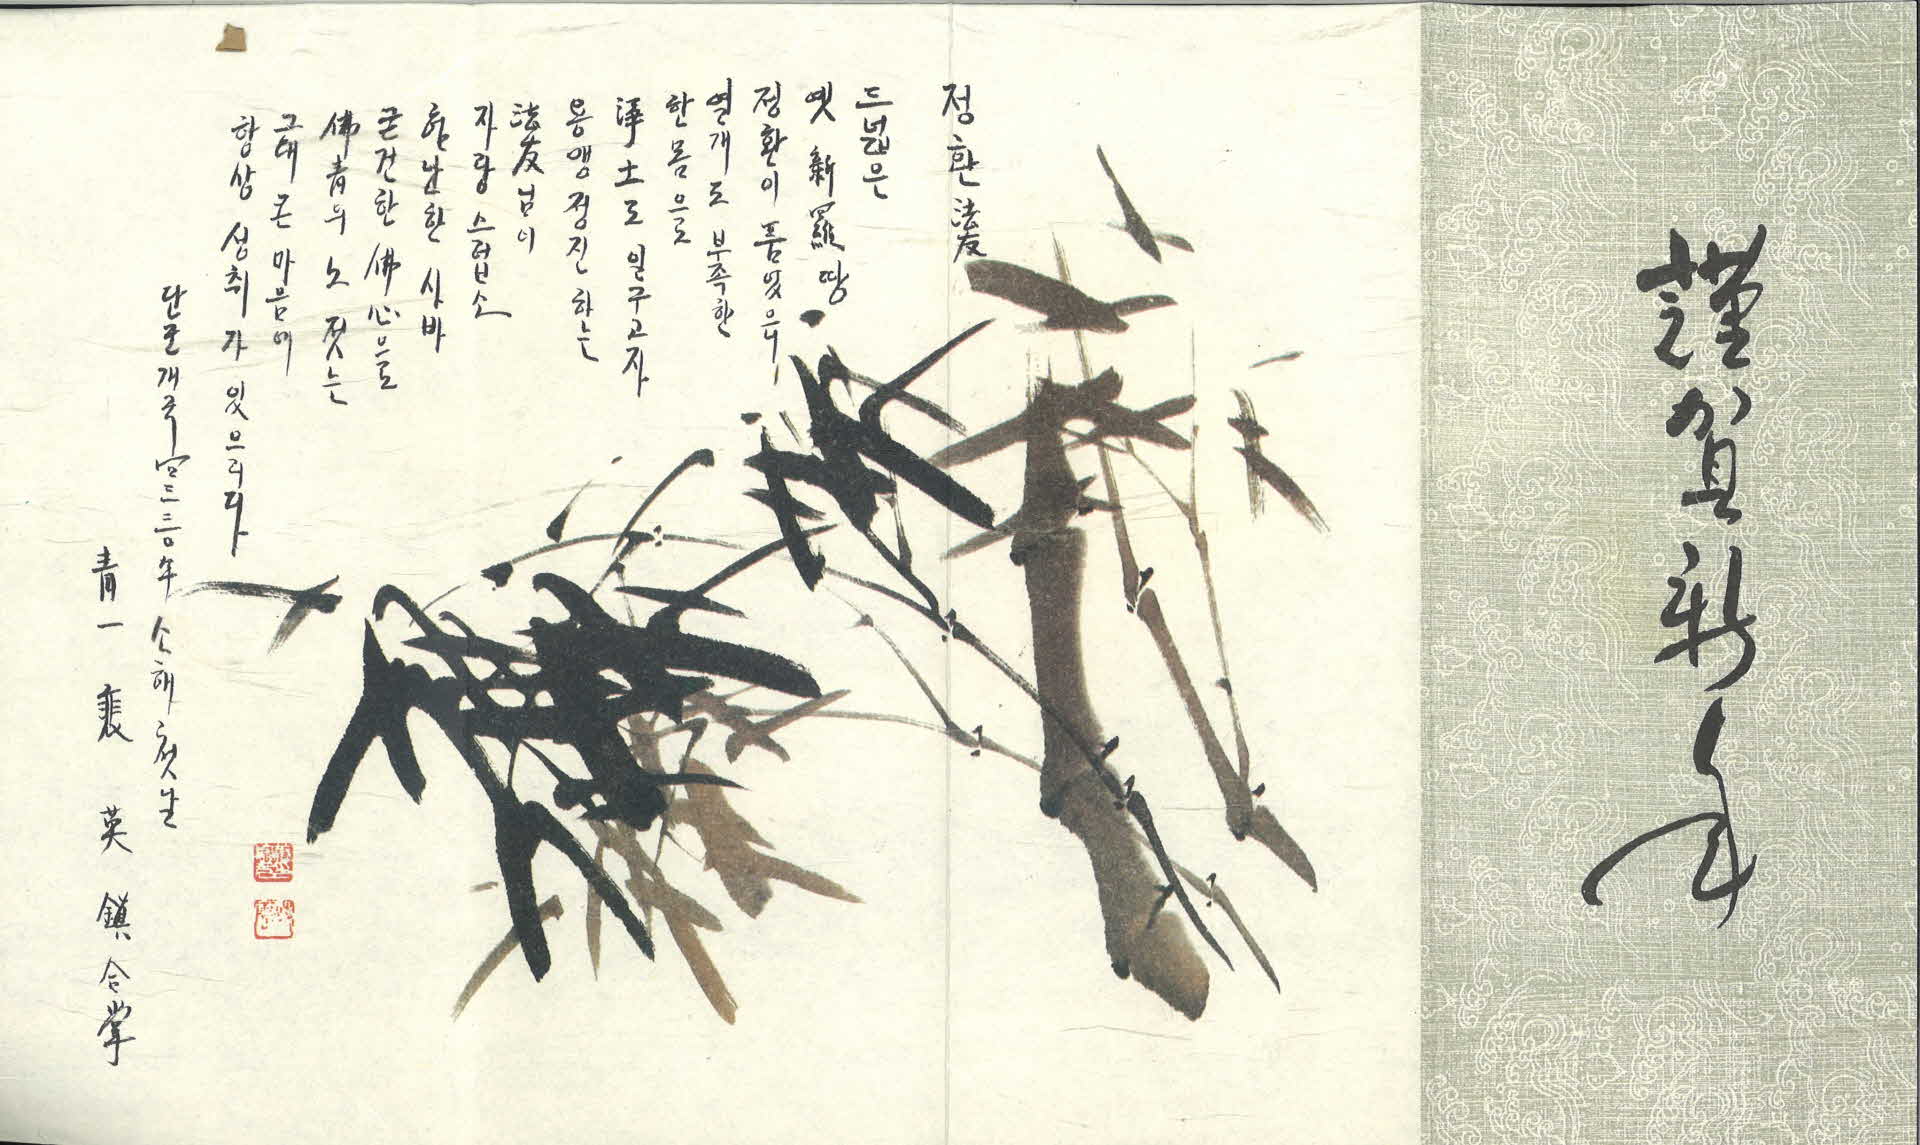 謹賀新年
정환 法友
드넓은
옛 新羅 땅
정환이 품었으니,
열개도 부족한
한 몸을
淨土로 일구고자
용맹정진 하는
法友님이
자랑스럽소
험난한 사바
굳건한 佛心을
佛靑의 노 젓는
그대 큰 마음에
항상 성취가 있으리다
단군개국 四三三○年 소해 첫날
靑一 裵 英 鎭 合掌